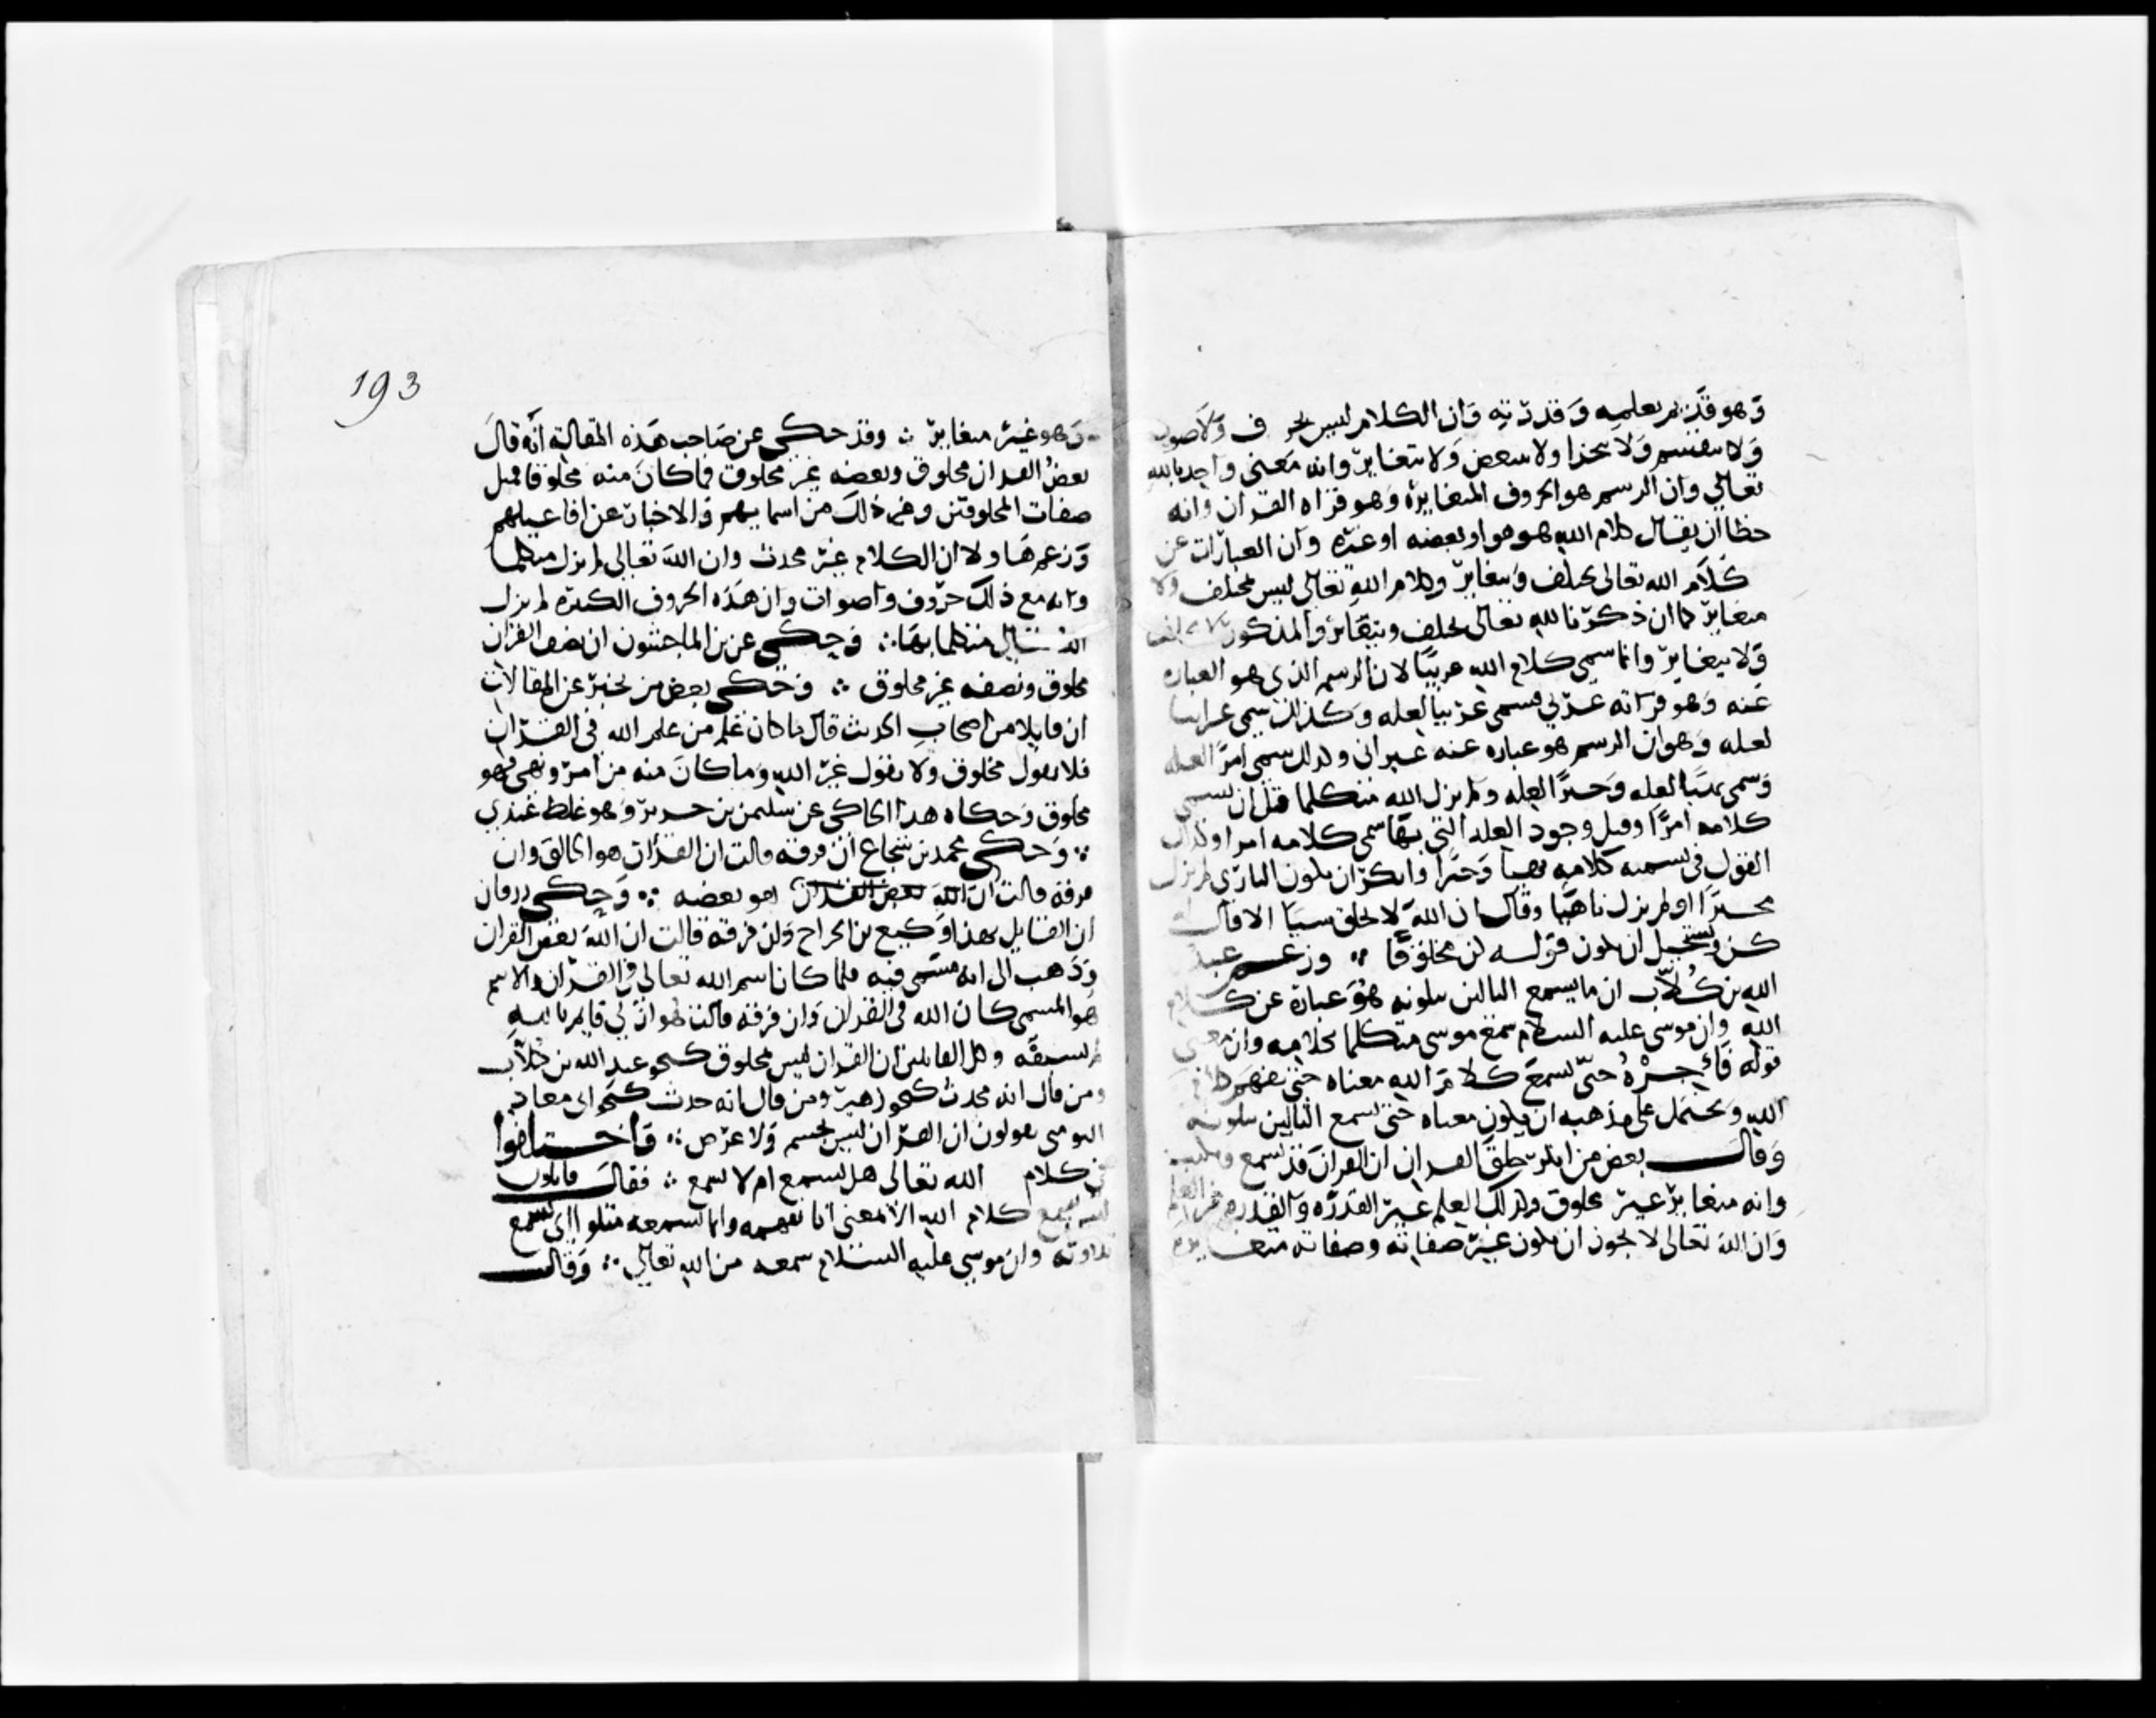 وهو قديم بعلمه وقدرته وان الكلام ليس بحروف ولا صوت
ولا ينقسم ولا يتجزا ولا يتبعض ولا يتغاير وانه معنى واحد بالله
تعالى وان الرسم هو الحروف المتغايرة وهو قراة القران وانه
خطا ان يقال كلام الله هو هو او بعضه او غيره وان العبارات عن
كلام الله تعالى تختلف وتتغاير وكلام الله تعالى ليس بمختلف ولا
متغاير كما ان ذكرنا لله تعالى يختلف ويتغاير والمذكور لا يختلف
ولا يتغاير وانما سمي كلام الله عربيا لان الرسم الذي هو العبارة
عنه وهو قراته عربي فسمي عربيا لعلة وكذلك سمي عبرانيا
لعلة وهو ان الرسم هو عبارة عنه عبراني وكذلك سمي امرا لعلة
وسمي نهيا لعلة وخبرا لعلة ولم يزل الله متكلما قبل ان يسمى
كلامه امرا وقبل وجود العلة التي بها سمي كلامه امرا وكذلك
القول في تسمية كلامه نهيا وخبرا وانكر ان يكون الباري لم يزل
مخبرا او لم يزل ناهيا وقال ان الله لا يخلق شيا الا قال له
كن ويستحيل ان يكون قوله كن مخلوقا ∴ وزعم عبد
الله بن كلاب ان ما يسمع التالين يتلونه هو عبارة عن كلام
الله وان موسى عليه السلام سمع موسى متكلما بكلامه وان معنى
قوله فاجره حتى يسمع كلام الله معناه حتى يفهم كلام
الله ويحتمل على مذهبه ان يكون معناه حتى يسمع التالين يتلونه
وقال بعض من انكر خلق القران ان القران قد يسمع ويكتب
وانه متغاير غير مخلوق وكذلك العلم غير القدرة والقدرة غير العلم
وان الله تعالى لا يجوز ان يكون غير صفاته وصفاته متغايرة
193
وهو غير متغاير ∴ وقد حكي عن صاحب هذه المقالة انه قال
بعض القران مخلوق وبعضه غير مخلوق فما كان منه مخلوقا فمثل
صفات المخلوقين وغير ذلك من اسمايهم والاخبار عن افاعيلهم
وزعم هاولا ان الكلام غير محدث وان الله تعالى لم يزل متكلما
وانه مع ذلك حروف واصوات وان هذه الحروف الكثيرة لم يزل
الله تعالى متكلما بها ∴ وحكي عن بن الماجشون ان نصف القران
مخلوق ونصفه غير مخلوق ∴ وحكى بعض من يخبر عن المقالات
ان قايلا من اصحاب الحديث قال ما كان علم من علم الله في القران
فلا نقول مخلوق ولا نقول غير الله وما كان منه من امر ونهي فهو
مخلوق وحكاه هذا الحاكي عن سليمن بن جرير وهو غلط عندي
∴ وحكى محمد بن شجاع ان فرقة قالت ان القران هو الخالق وان
فرقة قالت ان الله بعض القران هو بعضه ∴ وحكى زرقان
ان القايل بهذا وكيع بن الجراح وان فرقة قالت ان الله بعض القران
وذهب الى انه مسمى فيه فلما كان اسم الله تعالى في القران والاسم
هو المسمى كان الله في القران وان فرقة قالت هو ازلي قايم بالله
لم يسبقه وكل القايلين ان القران ليس بمخلوق كنحو عبد الله بن كلاب
ومن قال انه محدث كنحو زهير ومن قال انه حدث كنحو ابي معاذ
التومني يقولون ان القران ليس بجسم ولا عرض ∴ واختلفوا
في كلام الله تعالى هل يسمع ام لا يسمع ∴ فقال قايلون
ليس يسمع كلام الله الا بمعنى انا نفهمه وانما نسمعه متلوا اي نسمع
تلاوته وان موسى عليه السلام سمعه من الله تعالى ∴ وقال